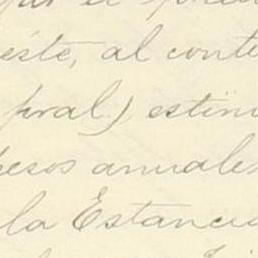 éste, al conte
pral.) estim
pesos anuales
la Estancia